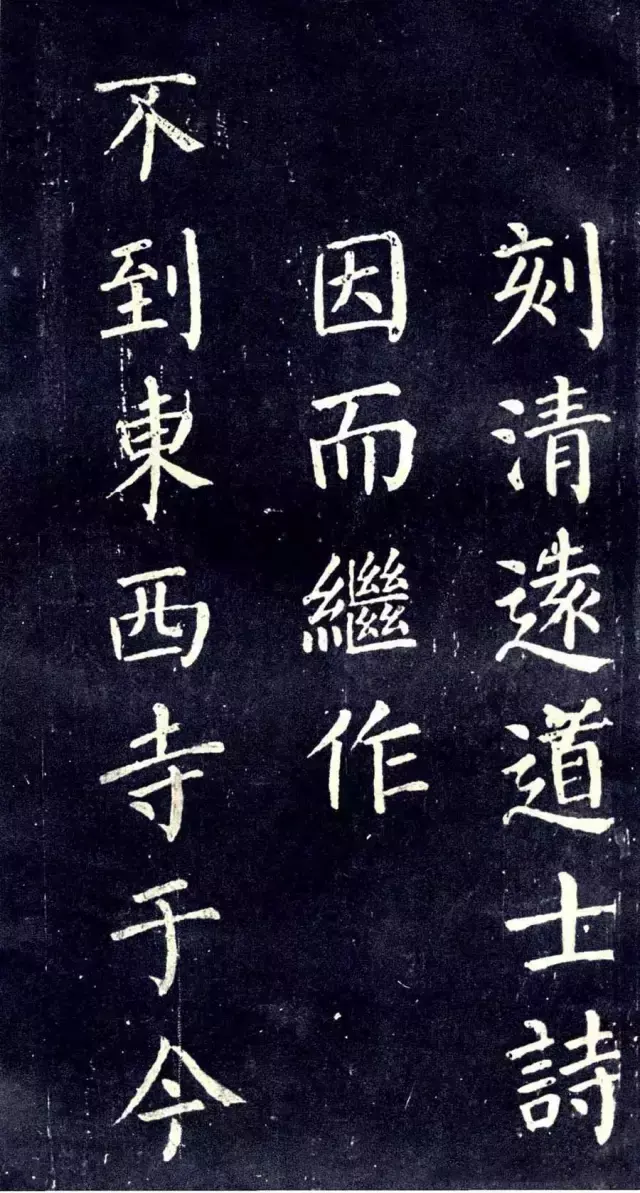 刻清遠道士詩
因而繼作
不到東西寺于今